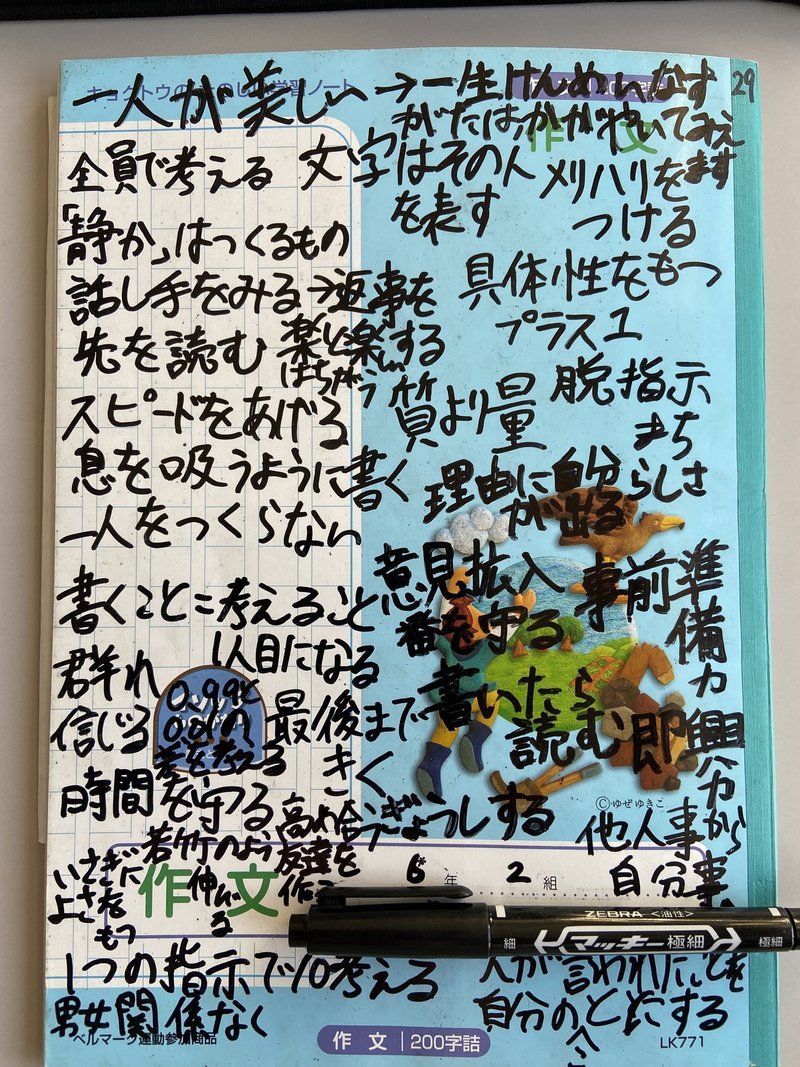 29
一人が美しい→一生けんめいなす
がたは、かがやいてみえ
ます
全員で考える
文字はその人
を表す
メリハリを
つける
「静か」はつくるもの
話し手をみる→返事を
する
具体性をもつ
プラス1
先を読む
楽と楽しい
はちがう
スピードをあげる
質より量
脱指示
まち
息を吸うように書く
理由に自分らしさ
が出る
一人をつくらない
意見拡入
番を守る
事前準
備力
書くこと=考えること
群れ
1人目になる
信じる
0.99と
0.01の
差を考える
最後まで
きく
書いたら
読む
即興
力
時間を守る
ぎょうしする
©ゆぜゆきこ
他人事から
自分事
若竹のように
伸びる
高め合う
友達を
作る
いさぎ
よさを
もつ
作文
6年 2組
ZEBRA <油性>
細 マッキー極細 極細
1つの指示で10考える
人が言われたことを
自分のことにする
男女関係なく
ベルマーク運動参加商品
作文 200字詰
LK771